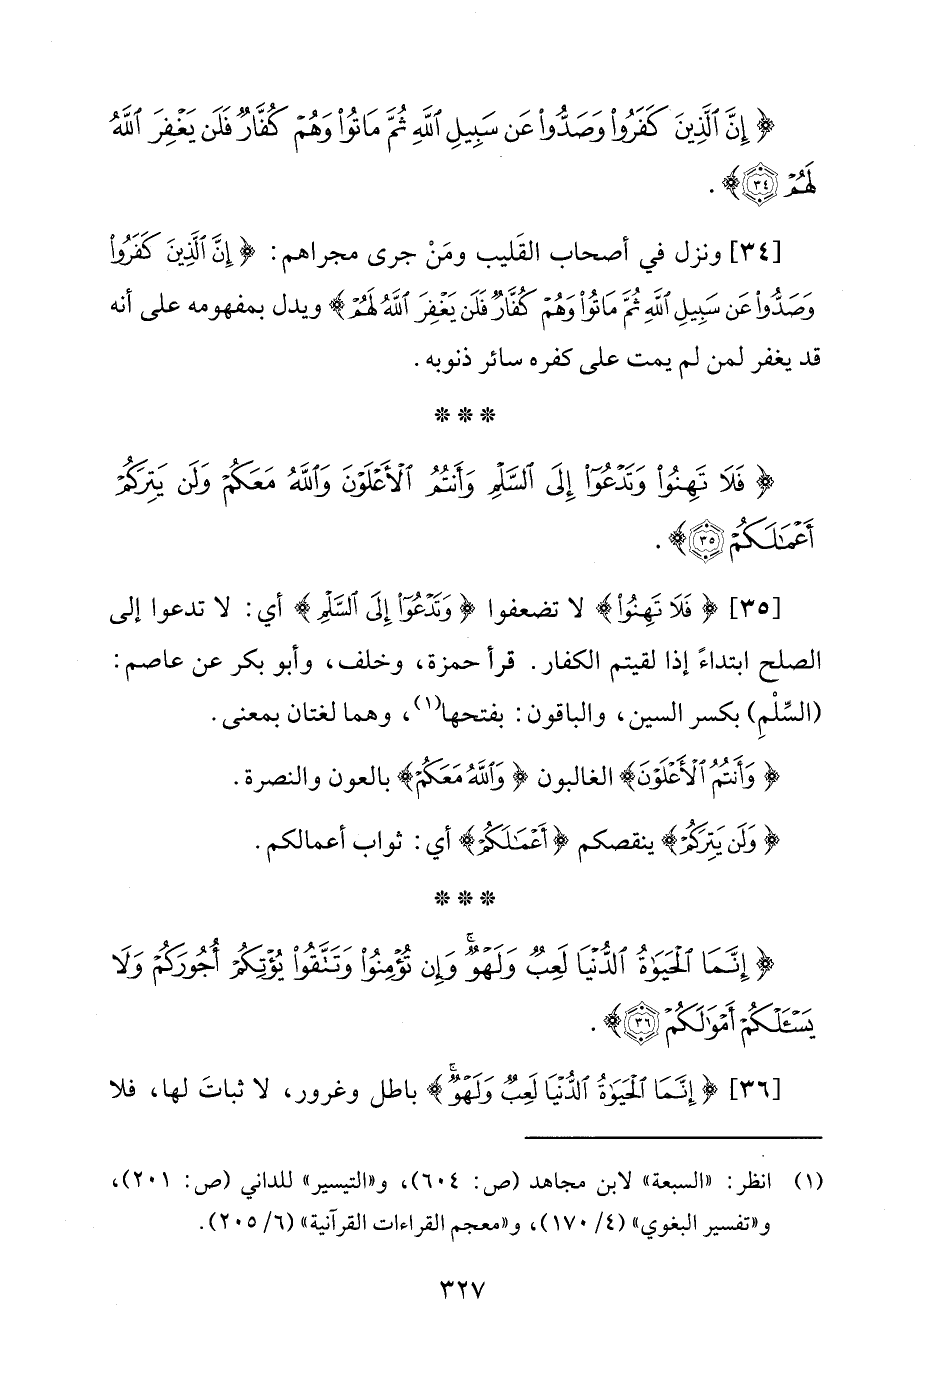 ﴿ إِنَّ ٱلَّذِينَ كَفَرُوا۟ وَصَدُّوا۟ عَن سَبِيلِ ٱللَّهِ ثُمَّ مَاتُوا۟ وَهُمْ كُفَّارٌ فَلَن يَغْفِرَ ٱللَّهُ
لَهُمْ ٣٤ ﴾ .
[٣٤] ونزل في أصحاب القَليب ومَنْ جرى مجراهم: ﴿ إِنَّ ٱلَّذِينَ كَفَرُوا۟
وَصَدُّوا۟ عَن سَبِيلِ ٱللَّهِ ثُمَّ مَاتُوا۟ وَهُمْ كُفَّارٌ فَلَن يَغْفِرَ ٱللَّهُ لَهُمْ ﴾ ويدل بمفهومه على أنه
قد يغفر لمن لم يمت على كفره سائر ذنوبه .
* * *
﴿ فَلَا تَهِنُوا۟ وَتَدْعُوٓا۟ إِلَى ٱلسَّلْمِ وَأَنتُمُ ٱلْأَعْلَوْنَ وَٱللَّهُ مَعَكُمْ وَلَن يَتِرَكُمْ
أَعْمَـٰلَكُمْ ٣٥ ﴾ .
[٣٥] ﴿ فَلَا تَهِنُوا۟ ﴾ لا تضعفوا ﴿ وَتَدْعُوٓا۟ إِلَى ٱلسَّلْمِ ﴾ أي: لا تدعوا إلى
الصلح ابتداءً إذا لقيتم الكفار. قرأ حمزة، وخلف، وأبو بكر عن عاصم:
(السِّلْمِ) بكسر السين، والباقون: بفتحها(١)، وهما لغتان بمعنى.
﴿ وَأَنتُمُ ٱلْأَعْلَوْنَ ﴾ الغالبون ﴿ وَٱللَّهُ مَعَكُمْ ﴾ بالعون والنصرة.
﴿ وَلَن يَتِرَكُمْ ﴾ ينقصكم ﴿ أَعْمَـٰلَكُمْ ﴾ أي: ثواب أعمالكم.
* * *
﴿ إِنَّمَا ٱلْحَيَوٰةُ ٱلدُّنْيَا لَعِبٌ وَلَهْوٌ ۚ وَإِن تُؤْمِنُوا۟ وَتَتَّقُوا۟ يُؤْتِكُمْ أُجُورَكُمْ وَلَا
يَسْـَٔلْكُمْ أَمْوَٰلَكُمْ ٣٦ ﴾ .
[٣٦] ﴿ إِنَّمَا ٱلْحَيَوٰةُ ٱلدُّنْيَا لَعِبٌ وَلَهْوٌ ۚ ﴾ باطل وغرور، لا ثباتَ لها، فلا
(١) انظر: «السبعة» لابن مجاهد (ص: ٦٠٤)، و«التيسير» للداني (ص: ٢٠١)،
و«تفسير البغوي» (٤/ ١٧٠)، و«معجم القراءات القرآنية» (٦/ ٢٠٥).
٣٢٧